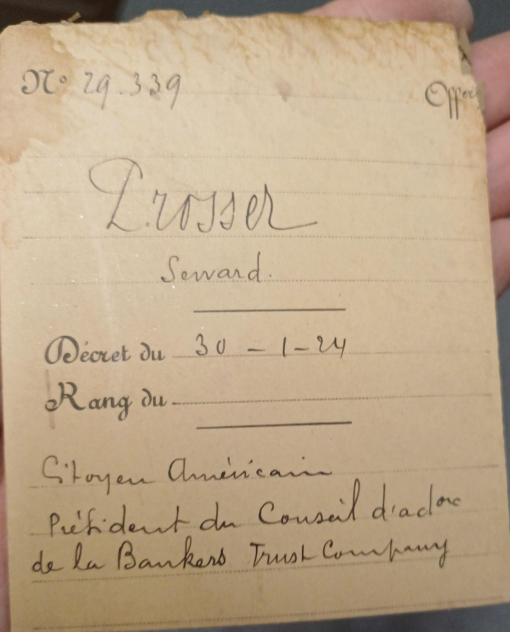 N° 29.339
Prosser
Seward.
Décret du 30-1-24
Rang du
Citoyen Américain
Président du Conseil d'ad
de la Bankers Trust Company